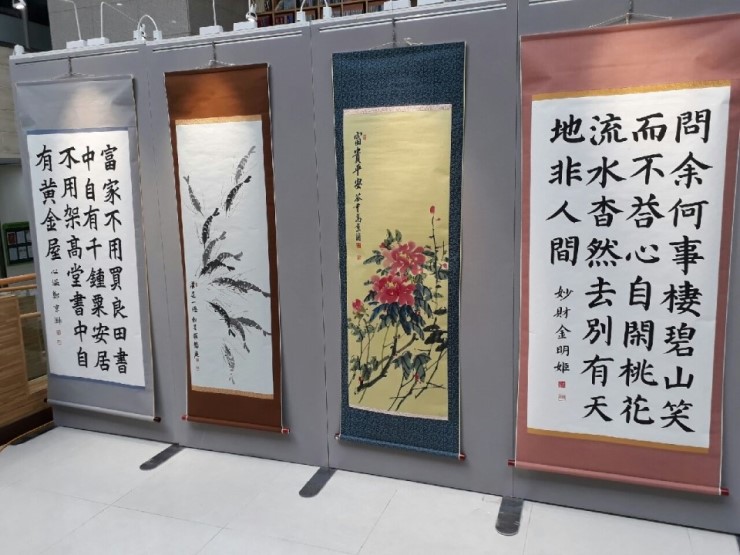 富家不用買良田書
中自有千鍾粟安居
不用架高堂書中自
有黃金屋
富貴平安
問余何事棲碧山笑
而不荅心自閑桃花
流水杳然去別有天
地非人間
妙財金明姬